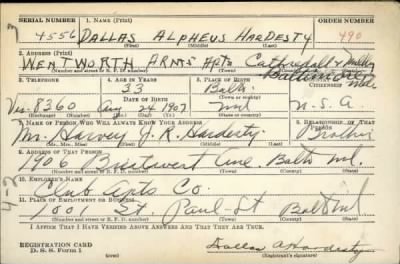 SERIAL NUMBER 1. NAME (Print) ORDER NUMBER
4556 DALLAS ALPHEUS HARDESTY 490
(First) (Middle) (Last)
2. ADDRESS (Print)
WENTWORTH ARMS Apts Cathedral &
Baltimore
(Number and street or R. F. D. number) (Town) (County) (State)
3. TELEPHONE 4. AGE IN YEARS 5. PLACE OF BIRTH 6. COUNTRY OF CITIZENSHIP
33 Balto.
DATE OF BIRTH (Town or county)
Ver-8360 Aug 24 1907 Md U.S.A.
(Exchange) (Number) (Mo.) (Day) (Yr.) (State or country)
7. NAME OF PERSON WHO WILL ALWAYS KNOW YOUR ADDRESS 8. RELATIONSHIP OF THAT PERSON
Mr. Harvey J. R. Hardesty Brother
(Mr., Mrs., Miss) (First) (Middle) (Last)
9. ADDRESS OF THAT PERSON
1906 Ave. Balto Md.
(Number and street or R. F. D. number) (Town) (County) (State)
10. EMPLOYER'S NAME
Club Apts Co.
11. PLACE OF EMPLOYMENT OR BUSINESS
1001 St Paul St Balto Md
(Number and street or R. F. D. number) (Town) (County) (State)
I AFFIRM THAT I HAVE VERIFIED ABOVE ANSWERS AND THAT THEY ARE TRUE.
REGISTRATION CARD
D. S. S. Form 1 Dallas A Hardesty
(Registrant's signature)